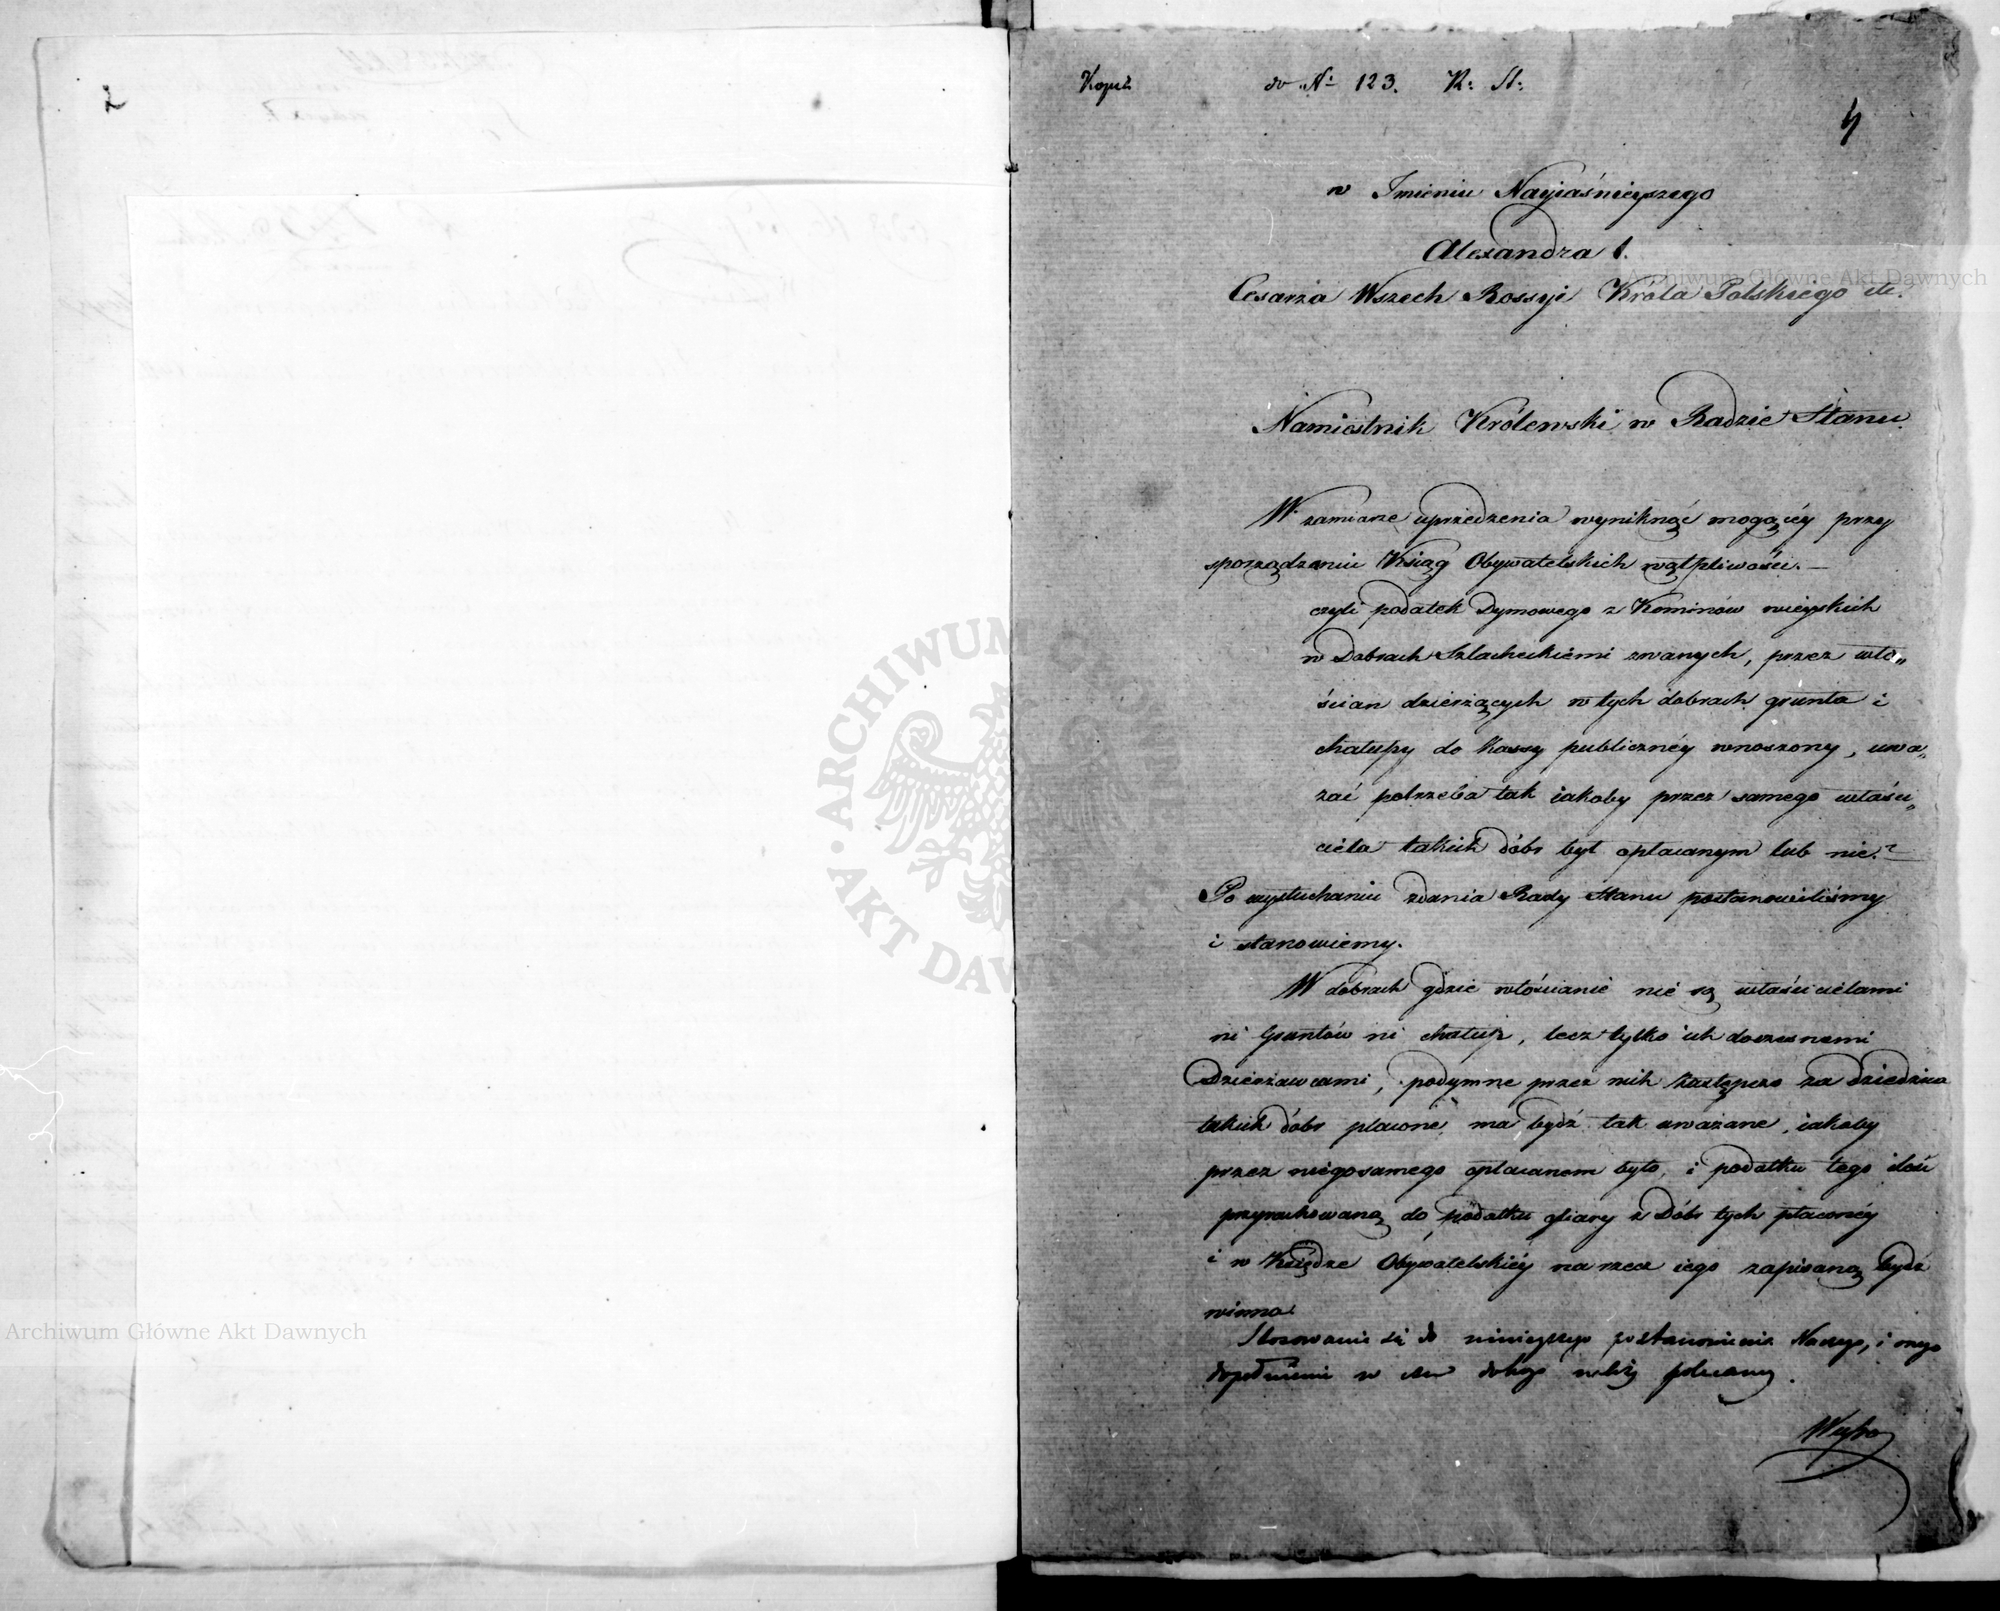 2
Kopia
do No 123. R: St:
4
w Imieniu Nayiaśnieyszego
Alexandra I.
Cesarza Wszech Rossyi Króla Polskiego etc.
Namiestnik Królewski w Radzie Stanu
W zamiarze uprzedzenia wyniknąć mogącéy przy
sporządzaniu Xsiąg Obywatelskich wątpliwości. —
czyli podatek Dymowego z Kominów wieyskich
w Dobrach Szlacheckiemi zwanych, przez wło„
ścian dzierżących w tych dobrach grunta i
chałupy do Kassy publicznéy wnoszony, uwa„
żać potrzeba tak iakoby przez samego właści„
ciela takich dóbr był opłacanym lub nie? —
Po wysłuchaniu zdania Rady Stanu postanowiliśmy
i stanowiemy.
W dobrach gdzie włościanie nie są właścicielami
ni Gruntów ni chałup, lecz tylko ich doczesnemi
Dzierżawcami, podymne przez nich zastępczo za dziedzica
takich dóbr płacone, ma bydź tak uważane, iakoby
przez niego samego opłacanem było, i podatku tego ilość
przyrachowaną do podatku ofiary z Dóbr tych płaconéy
i w Xiędze Obywatelskiéy na rzecz iego zapisaną bydź
winna.
Stosowanie się do ninieyszego postanowienia Naszego, i onego
dopełnienie w czem do kogo należy polecamy.
ARCHIWUM GŁÓWNE • AKT DAWNYCH •
Archiwum Główne Akt Dawnych
Archiwum Główne Akt Dawnych